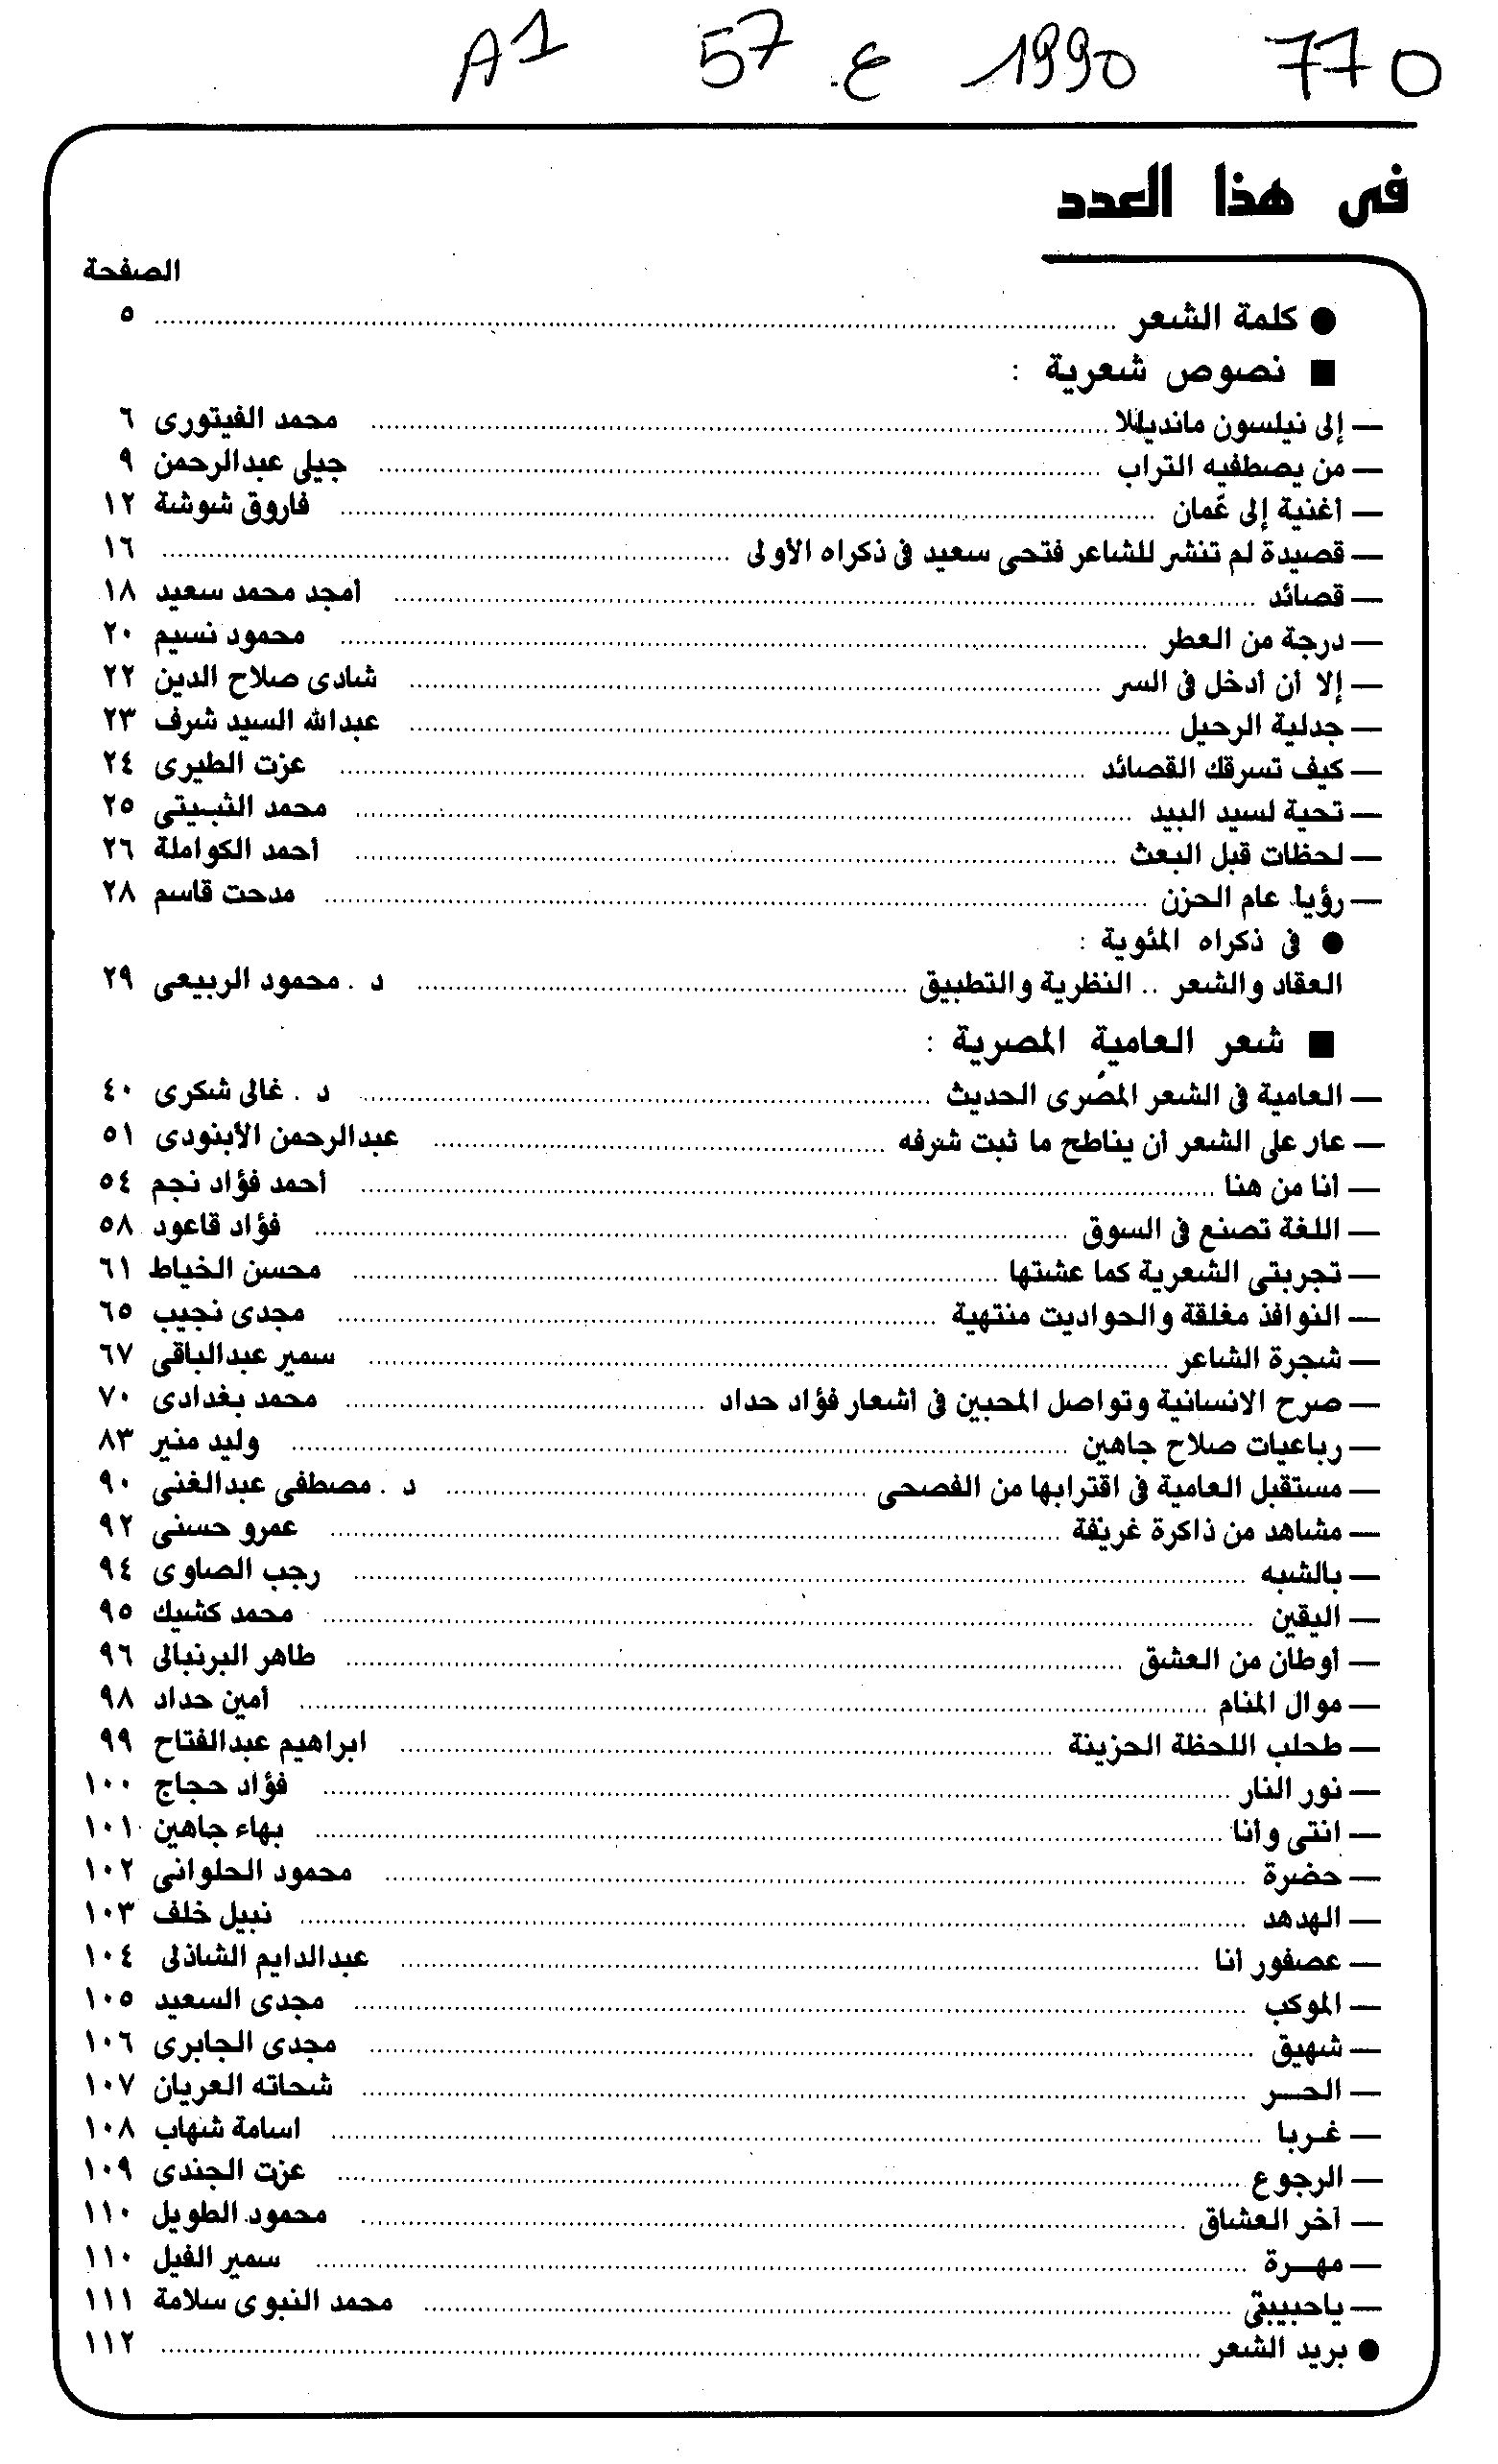 770 1990 ع. 57 A1
فى هذا العدد
الصفحة
● كلمة الشعر ........ ٥
■ نصوص شعرية :
— إلى نيلسون مانديلا ........ محمد الفيتورى ٦
— من يصطفيه التراب ........ جيلى عبدالرحمن ٩
— أغنية إلى عّمان ........ فاروق شوشة ١٢
— قصيدة لم تنشر للشاعر فتحى سعيد فى ذكراه الأولى ........ ١٦
— قصائد ........ أمجد محمد سعيد ١٨
— درجة من العطر ........ محمود نسيم ٢٠
— إلا أن أدخل فى السر ........ شادى صلاح الدين ٢٢
— جدلية الرحيل ........ عبدالله السيد شرف ٢٣
— كيف تسرقك القصائد ........ عزت الطيرى ٢٤
— تحية لسيد البيد ........ محمد الثبيتى ٢٥
— لحظات قبل البعث ........ أحمد الكواملة ٢٦
— رؤيا عام الحزن ........ مدحت قاسم ٢٨
● فى ذكراه المئوية :
العقاد والشعر .. النظرية والتطبيق ........ د . محمود الربيعى ٢٩
■ شعر العامية المصرية :
— العامية فى الشعر المصرى الحديث ........ د . غالى شكرى ٤٠
— عار على الشعر أن يناطح ما ثبت شرفه ........ عبدالرحمن الأبنودى ٥١
— أنا من هنا ........ أحمد فؤاد نجم ٥٤
— اللغة تصنع فى السوق ........ فؤاد قاعود ٥٨
— تجربتى الشعرية كما عشتها ........ محسن الخياط ٦١
— النوافذ مغلقة والحواديت منتهية ........ مجدى نجيب ٦٥
— شجرة الشاعر ........ سمير عبدالباقى ٦٧
— صرح الانسانية وتواصل المحبين فى أشعار فؤاد حداد ........ محمد بغدادى ٧٠
— رباعيات صلاح جاهين ........ وليد منير ٨٣
— مستقبل العامية فى اقترابها من الفصحى ........ د . مصطفى عبدالغنى ٩٠
— مشاهد من ذاكرة غريقة ........ عمرو حسنى ٩٢
— بالشبه ........ رجب الصاوى ٩٤
— اليقين ........ محمد كشيك ٩٥
— أوطان من العشق ........ طاهر البرنبالى ٩٦
— موال المنام ........ أمين حداد ٩٨
— طحلب اللحظة الحزينة ........ ابراهيم عبدالفتاح ٩٩
— نور النار ........ فؤاد حجاج ١٠٠
— انتى وأنا ........ بهاء جاهين ١٠١
— حضرة ........ محمود الحلوانى ١٠٢
— الهدهد ........ نبيل خلف ١٠٣
— عصفور أنا ........ عبدالدايم الشاذلى ١٠٤
— الموكب ........ مجدى السعيد ١٠٥
— شهيق ........ مجدى الجابرى ١٠٦
— الحـر ........ شحاته العريان ١٠٧
— غـربا ........ اسامة شهاب ١٠٨
— الرجوع ........ عزت الجندى ١٠٩
— آخر العشاق ........ محمود الطويل ١١٠
— مهـرة ........ سمير الفيل ١١٠
— ياحبيبتى ........ محمد النبوى سلامة ١١١
● بريد الشعر ........ ١١٢